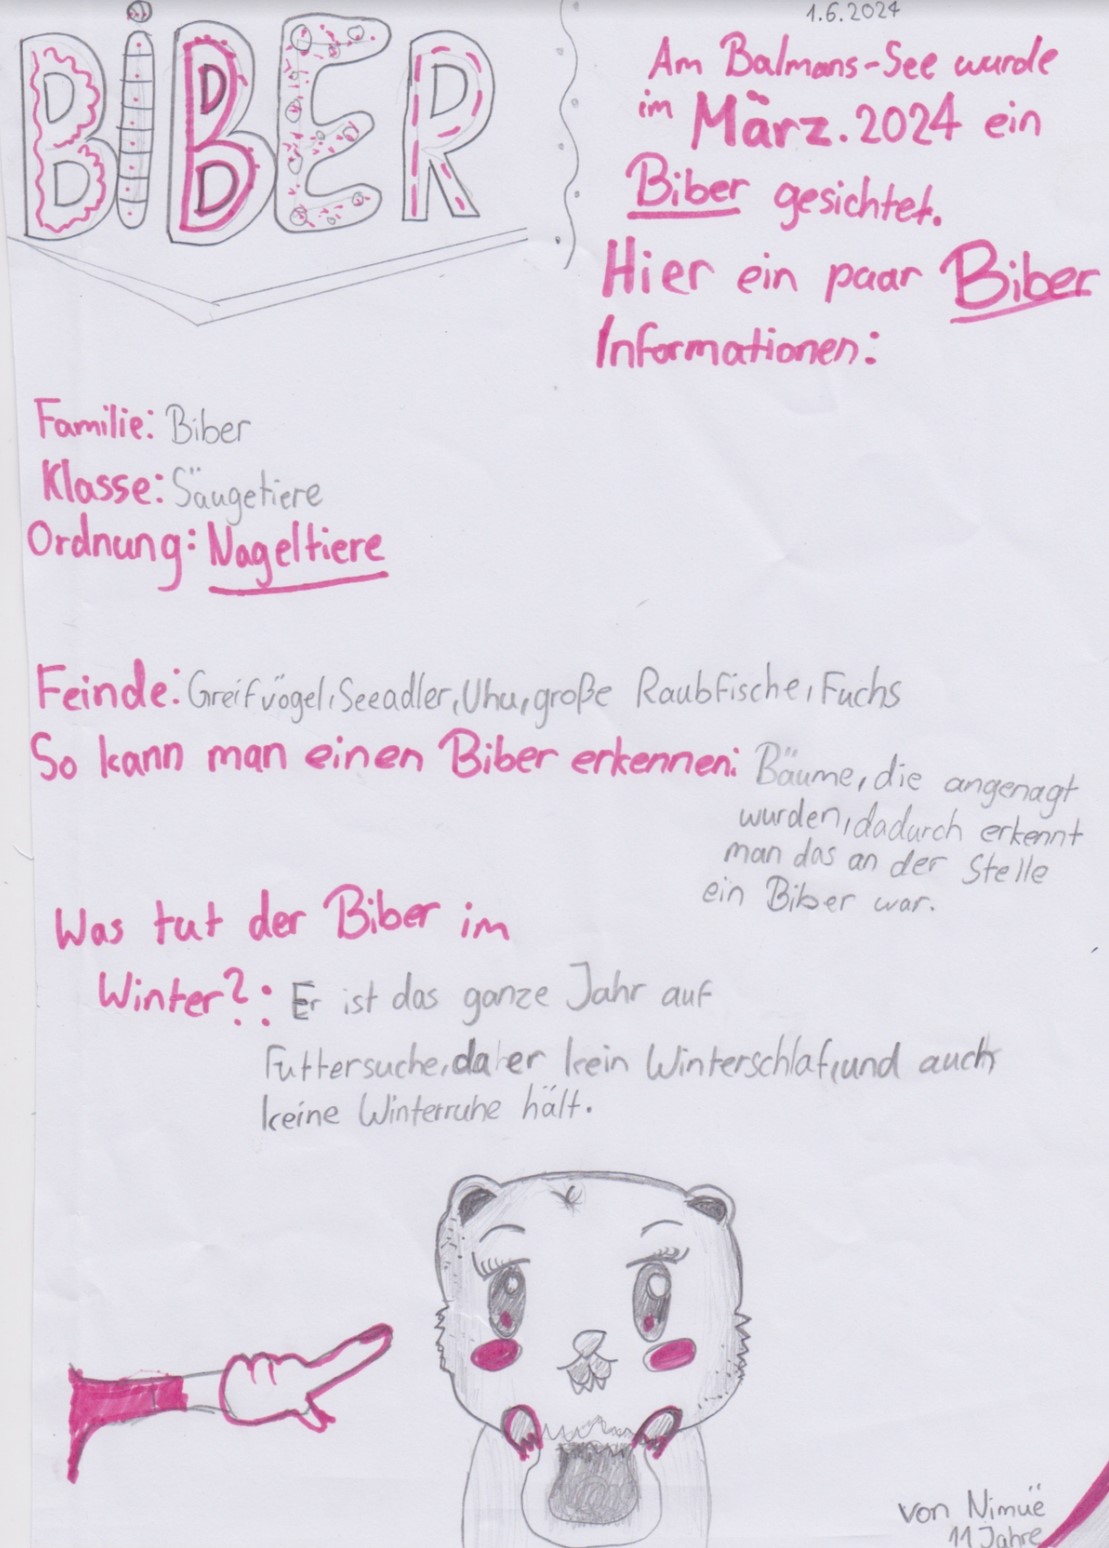 BIBER
1.6.2024
Am Balmans-See wurde
im März.2024 ein
Biber gesichtet.
Hier ein paar Biber
Informationen:
Familie: Biber
Klasse: Säugetiere
Ordnung: Nageltiere
Feinde: Greifvögel, Seeadler, Uhu, große Raubfische, Fuchs
So kann man einen Biber erkennen: Bäume, die angenagt
wurden, dadurch erkennt
man das an der Stelle
ein Biber war.
Was tut der Biber im
Winter?: Er ist das ganze Jahr auf
Futtersuche, daher kein Winterschlaf, und auch
keine Winterruhe hält.
von Nimüë
11 Jahre